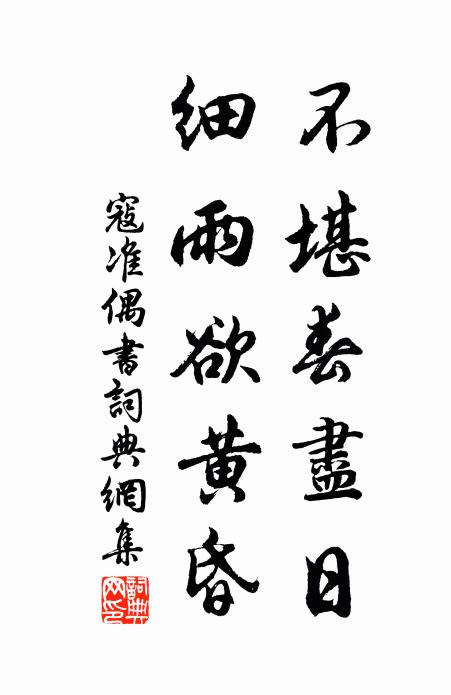 不堪春盡日
細雨欲黃昏
寇准偶書詞典網集
詞典網印